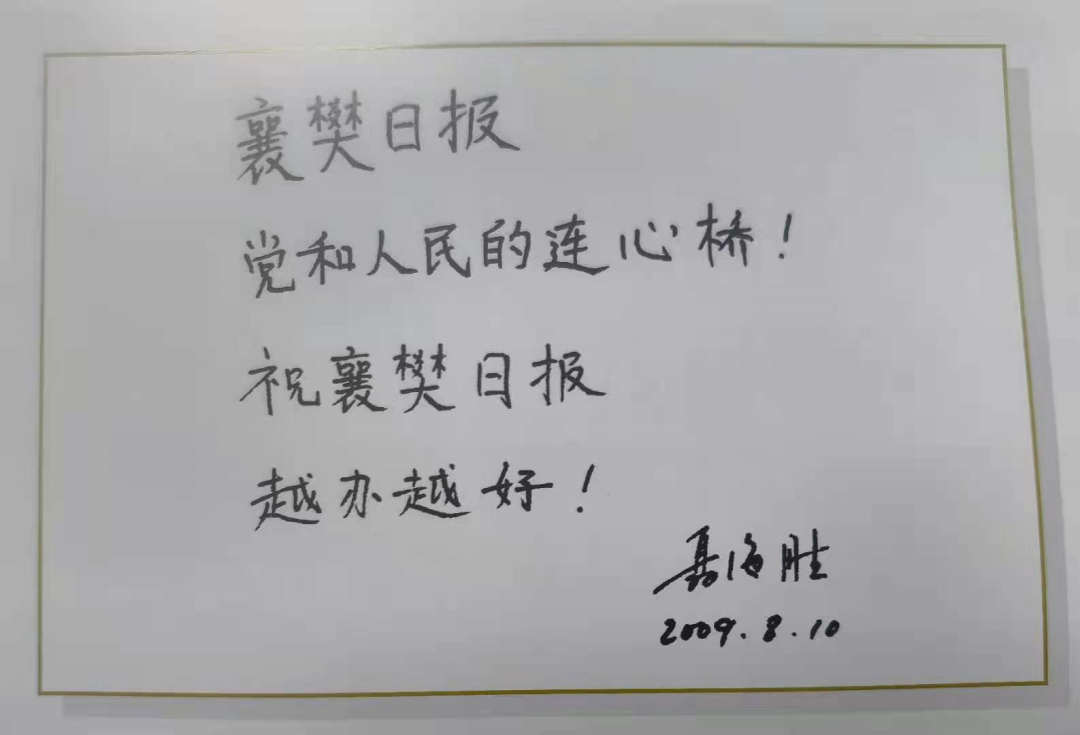 襄樊日报
党和人民的连心桥！
祝襄樊日报
越办越好！
聂海胜
2009.8.10